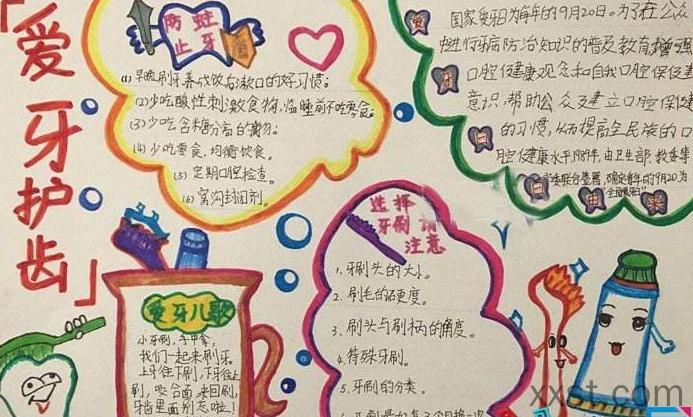 「爱牙护齿」
防蛀
止牙
(1) 早晚刷牙养成饭后漱口的好习惯;
(2) 少吃酸性刺激食物,临睡前不吃零食;
(3) 少吃含糖分高的食物;
(4) 少吃零食、均衡饮食。
(5) 定期口腔检查。
(6) 窝沟封闭剂。
国家爱牙日为每年的9月20日。为了在公众
中进行牙病防治知识的普及教育,增强
口腔健康观念和自我口腔保健
意识,帮助公众建立口腔保健
的习惯,从而提高全民族的口
腔健康水平。1989年,由卫生部、教委等
部委联合签署,确定每年的9月20为
爱
牙
日
选择
牙刷请
注意
1. 牙刷头的大小。
2. 刷毛的硬度。
3. 刷头与刷柄的角度。
4. 特殊牙刷。
5. 牙刷的分类。
爱牙儿歌
小牙刷,手中拿,
我们一起来刷牙。
上牙往下刷,下牙往上
刷,咬合面来回刷,
牙齿里面别忘啦!
xxst.com